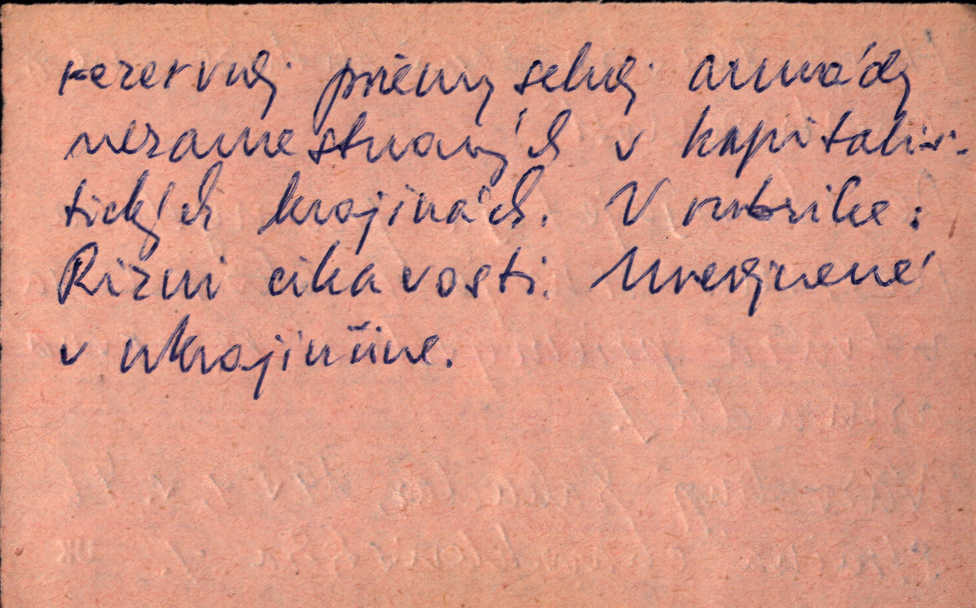 rezervnej priemyselnej armády
nezamestnaných v kapitalis-
tických krajinách. V rubrike:
Rizni cikavosti. Uverejnené
v ukrajinčine.